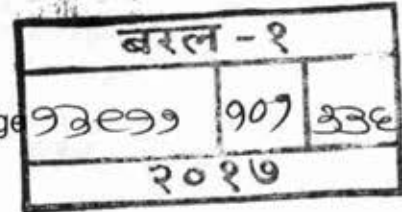 बरल - १
ge १३९११ १०१ ३३६
२०१७